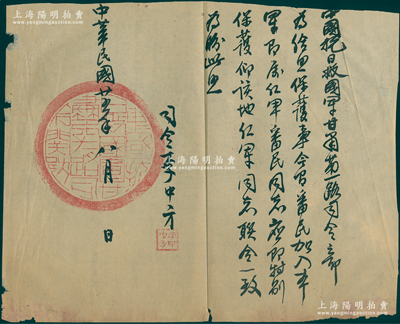 上海阳明拍卖
中國抗日救國軍甘肅第一路司令部
為給照保護事今有番民加入本
軍即屬紅軍番民同志應即特别
保護仰該地紅軍同志聯合一致
為盼此照
司令李中方
中華民國廿五年八月 日
上海阳明拍卖